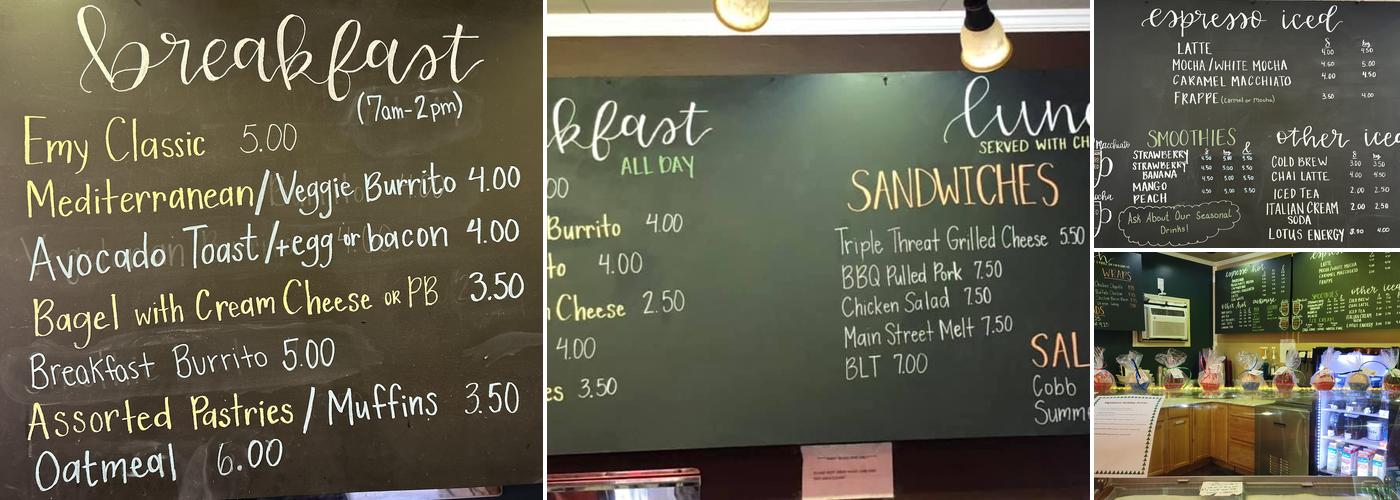 breakfast
(7am-2pm)
Emy Classic 5.00
Mediterranean/Veggie Burrito 4.00
Avocado Toast/+egg or bacon 4.00
Bagel with Cream Cheese OR PB 3.50
Breakfast Burrito 5.00
Assorted Pastries / Muffins 3.50
Oatmeal 6.00
kfast
ALL DAY
00
Burrito 4.00
to 4.00
Cheese 2.50
4.00
es 3.50
lun
SERVED WITH CH
SANDWICHES
Triple Threat Grilled Cheese 5.50
BBQ Pulled Pork 7.50
Chicken Salad 7.50
Main Street Melt 7.50
BLT 7.00
SAL
Cobb
Summe
espresso iced
LATTE 4.00 4.50
MOCHA/WHITE MOCHA 4.60 5.00
CARAMEL MACCHIATO 4.00 4.50
FRAPPE (Carmel or Mocha) 3.50 4.00
Macchiato
SMOOTHIES
STRAWBERRY 4.50 5.00 5.50
STRAWBERRY
BANANA 4.50 5.00 5.50
MANGO
PEACH 4.50 5.00 5.50
Ask About Our Seasonal
Drinks!
other iced
COLD BREW 3.00 3.50
CHAI LATTE 4.00 4.50
ICED TEA 2.00 2.50
ITALIAN CREAM
SODA 2.00 2.50
LOTUS ENERGY 4.00
WRAPS
espresso hot
LATTE
MOCHA/WHITE MOCHA
CARAMEL MACCHIATO
FRAPPE
SMOOTHIES
other iced
COLD BREW
CHAI LATTE
ICED TEA
ITALIAN CREAM
SODA
LOTUS ENERGY